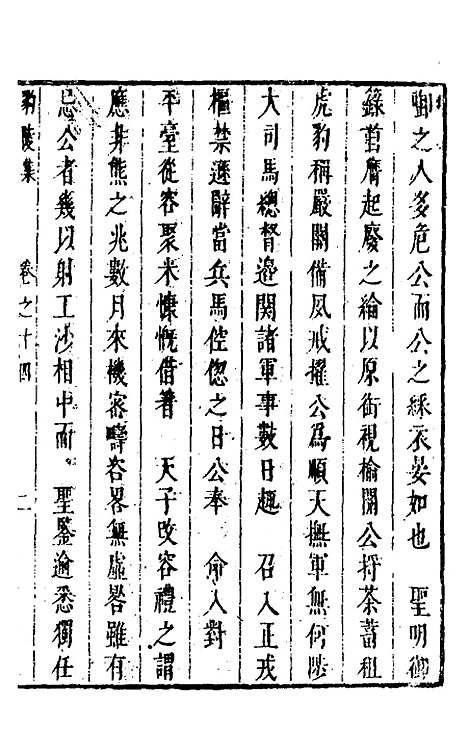 啣之人多危公而公之綵衣晏如也　聖明御
籙首膺起廢之綸以原銜視榆關公捋荼蓄租
虎豹稱嚴關備夙戒擢公為順天撫軍無何陟
大司馬總督邊関諸軍事數日趣　召入正戎
樞禁遜辭當兵馬倥傯之日公奉　俞入對
平臺從容聚米慷慨借箸　天子改容禮之謂
應非熊之兆數月來機宻疇咨畧無虛晷雖有
忌公者幾以射工沙相中而　聖鑒逾悉獨任
豹陵集　卷之十四　二